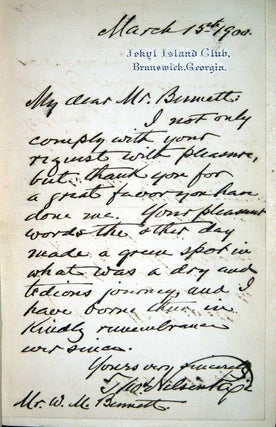 March 15th 1900.
Jekyl Island Club,
Brunswick, Georgia.
My dear Mr. Bennett
I not only
comply with your
request with pleasure,
but thank you for
a great favor you have
done me. Your pleasant
words the other day
made a green spot in
what was a dry and
tedious journey, and I
have borne them in
kindly remembrance
ever since.
Yours very sincerely
Mr. W. M. Bennett.